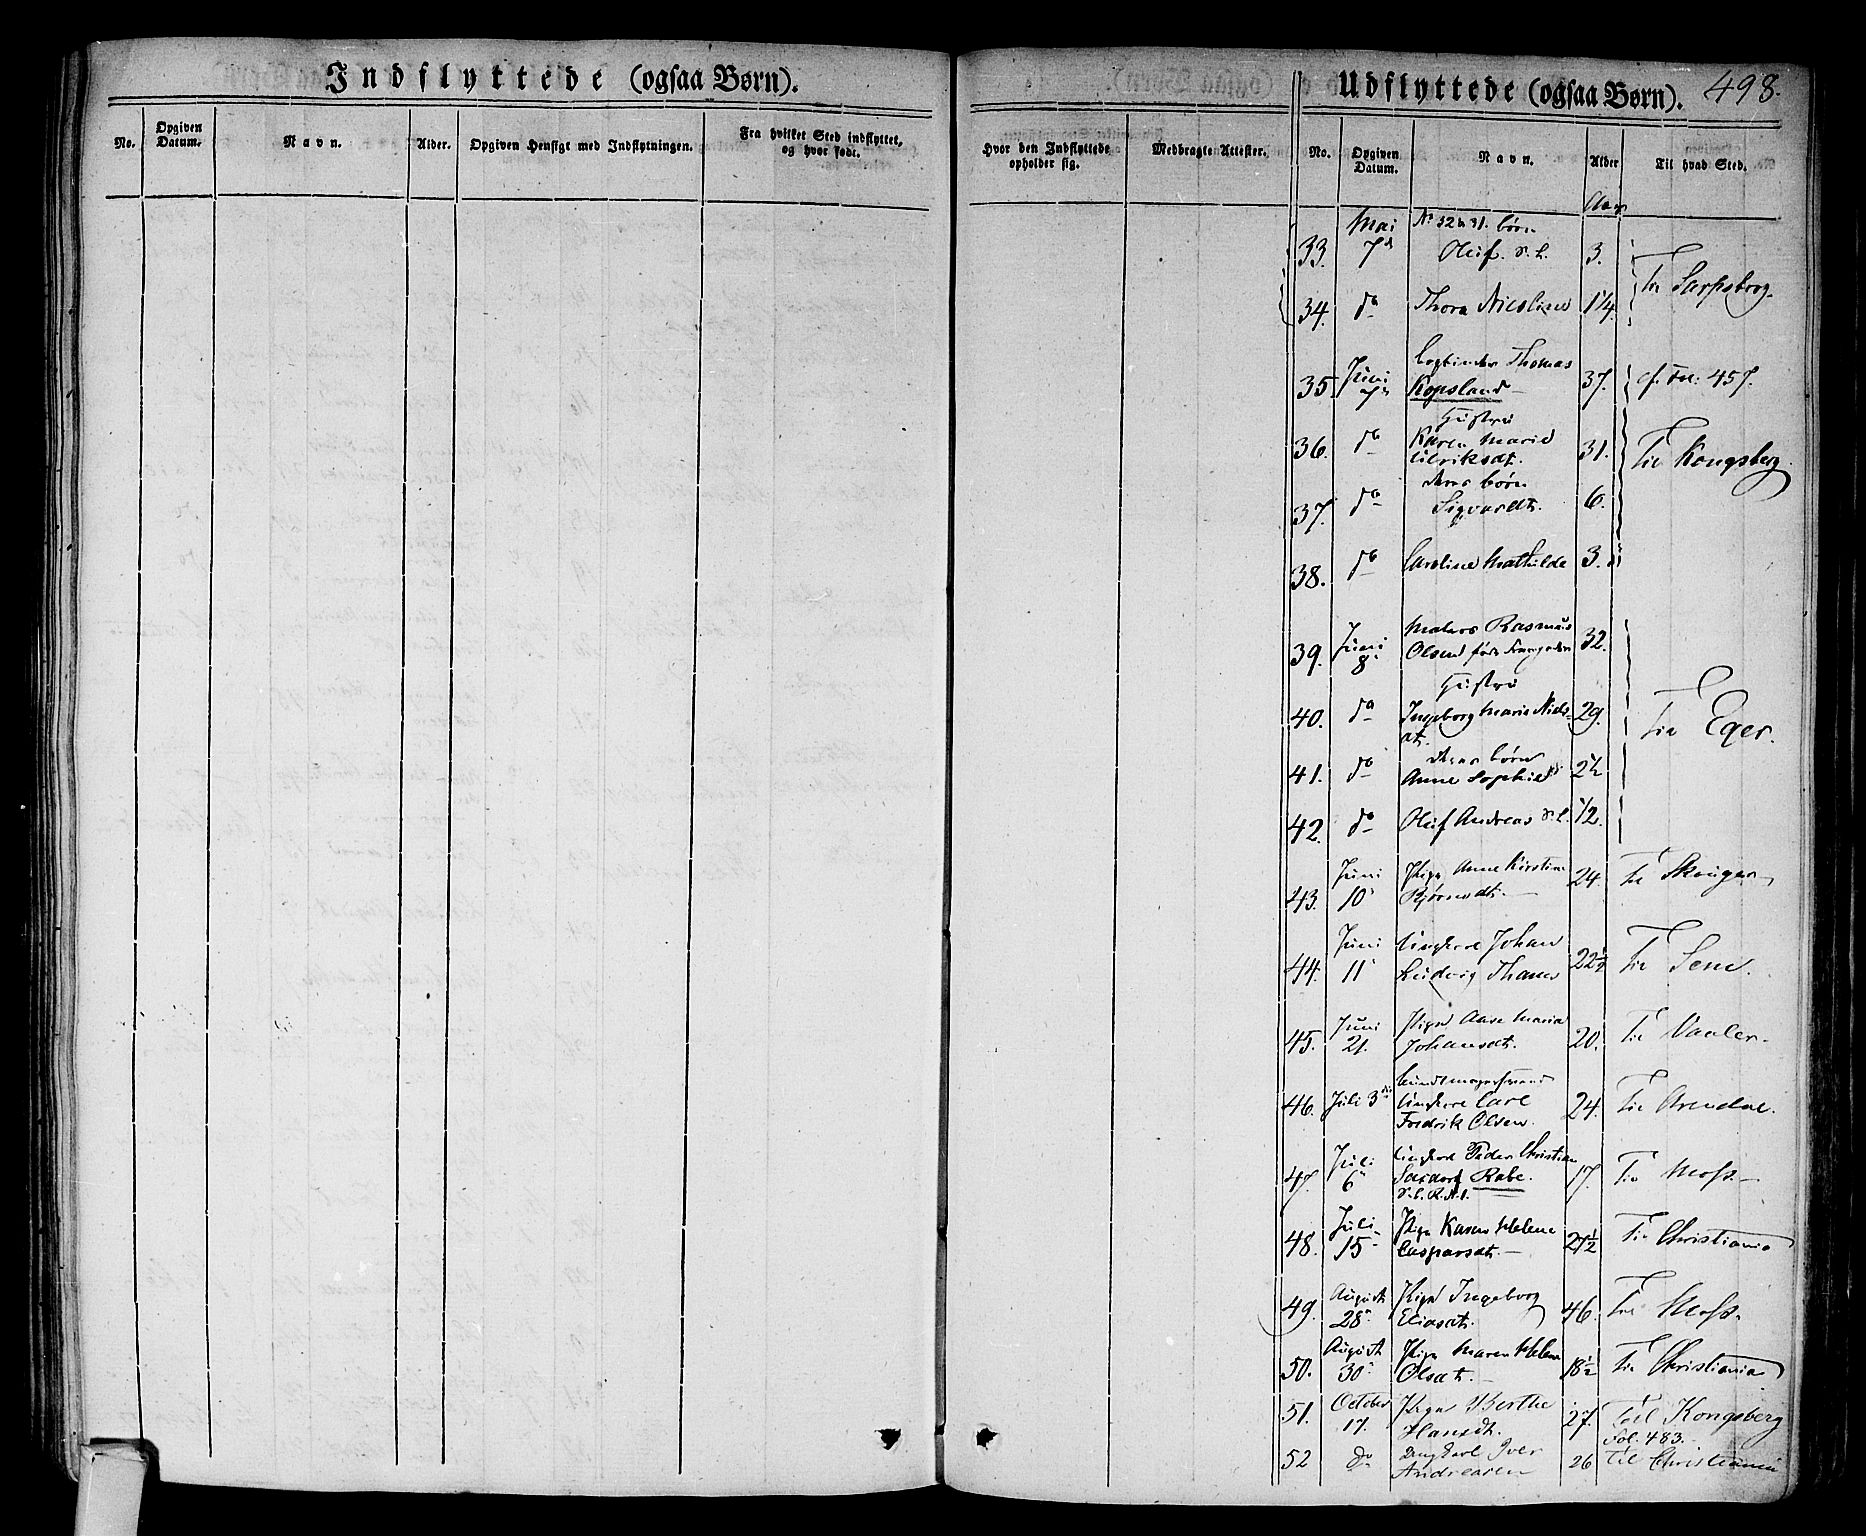 Indflyttede (ogsaa Børn).
No.
Opgiven Datum.
Navn.
Alder.
Opgiven Hensigt med Indflytningen.
Fra hvilket Sted indflyttet, og hvor født.
Hvor den Indflyttede opholder sig.
Medbragte Attester.
Udflyttede (ogsaa Børn). 498.
No.
Opgiven Datum.
Navn.
Alder
Til hvad Sted.
Aar
Mai No 32 & 31. børn
33. 7de Oluf 3.
Til Sarpsborg.
34. do Thora Nicoline 1 1/4.
Thomas
35. Juni Kopsland 37. cf. Fol: 457.
Hustru
36. do Karen Marie 31. Til Kongsberg
Ulriksdt.
deres børn
37. do Sigvardt. 6.
38. do Caroline Mathilde 3.
Rasmus
39. Juni 8 Olsen 32.
Hustru
40. do Ingeborg Marie Niels- 29. Til Eger.
dt.
deres børn
41. do Anne Sophie 2 1/2
42. do Oluf Andreas 1/2.
43. Juni 10 Pige Anne Kirstine 24 Til Skouger
Bjørnsdt.
44. Juni 11 Ungkarl Johan 22 1/2 Til Sem.
Ludvig
45. Juni 21. Pige Maria 20. Til Vaaler.
Johansdt.
46. Juli 3die Ungkarl Carl 24. Til Arendal.
Fredrik Olsen.
47. Juli 6 Ungkarl Peder Christian 17. Til Moss.
Rabe.
48. Juli 15 Pige Karen Helene 21 1/2 Til Christiania
Caspersdt.
49. August 28 Pige Ingeborg 46. Til Moss.
Eliasdt.
50. August 30 Pige Maren Helene 18 1/2 Til Christiania
Olsdt.
51. October 17. Pige Berthe 27. Til Kongsberg
Hansdt. Fol. 483.
52 do Ungkarl Iver 26 Til Christiania
Andreasen